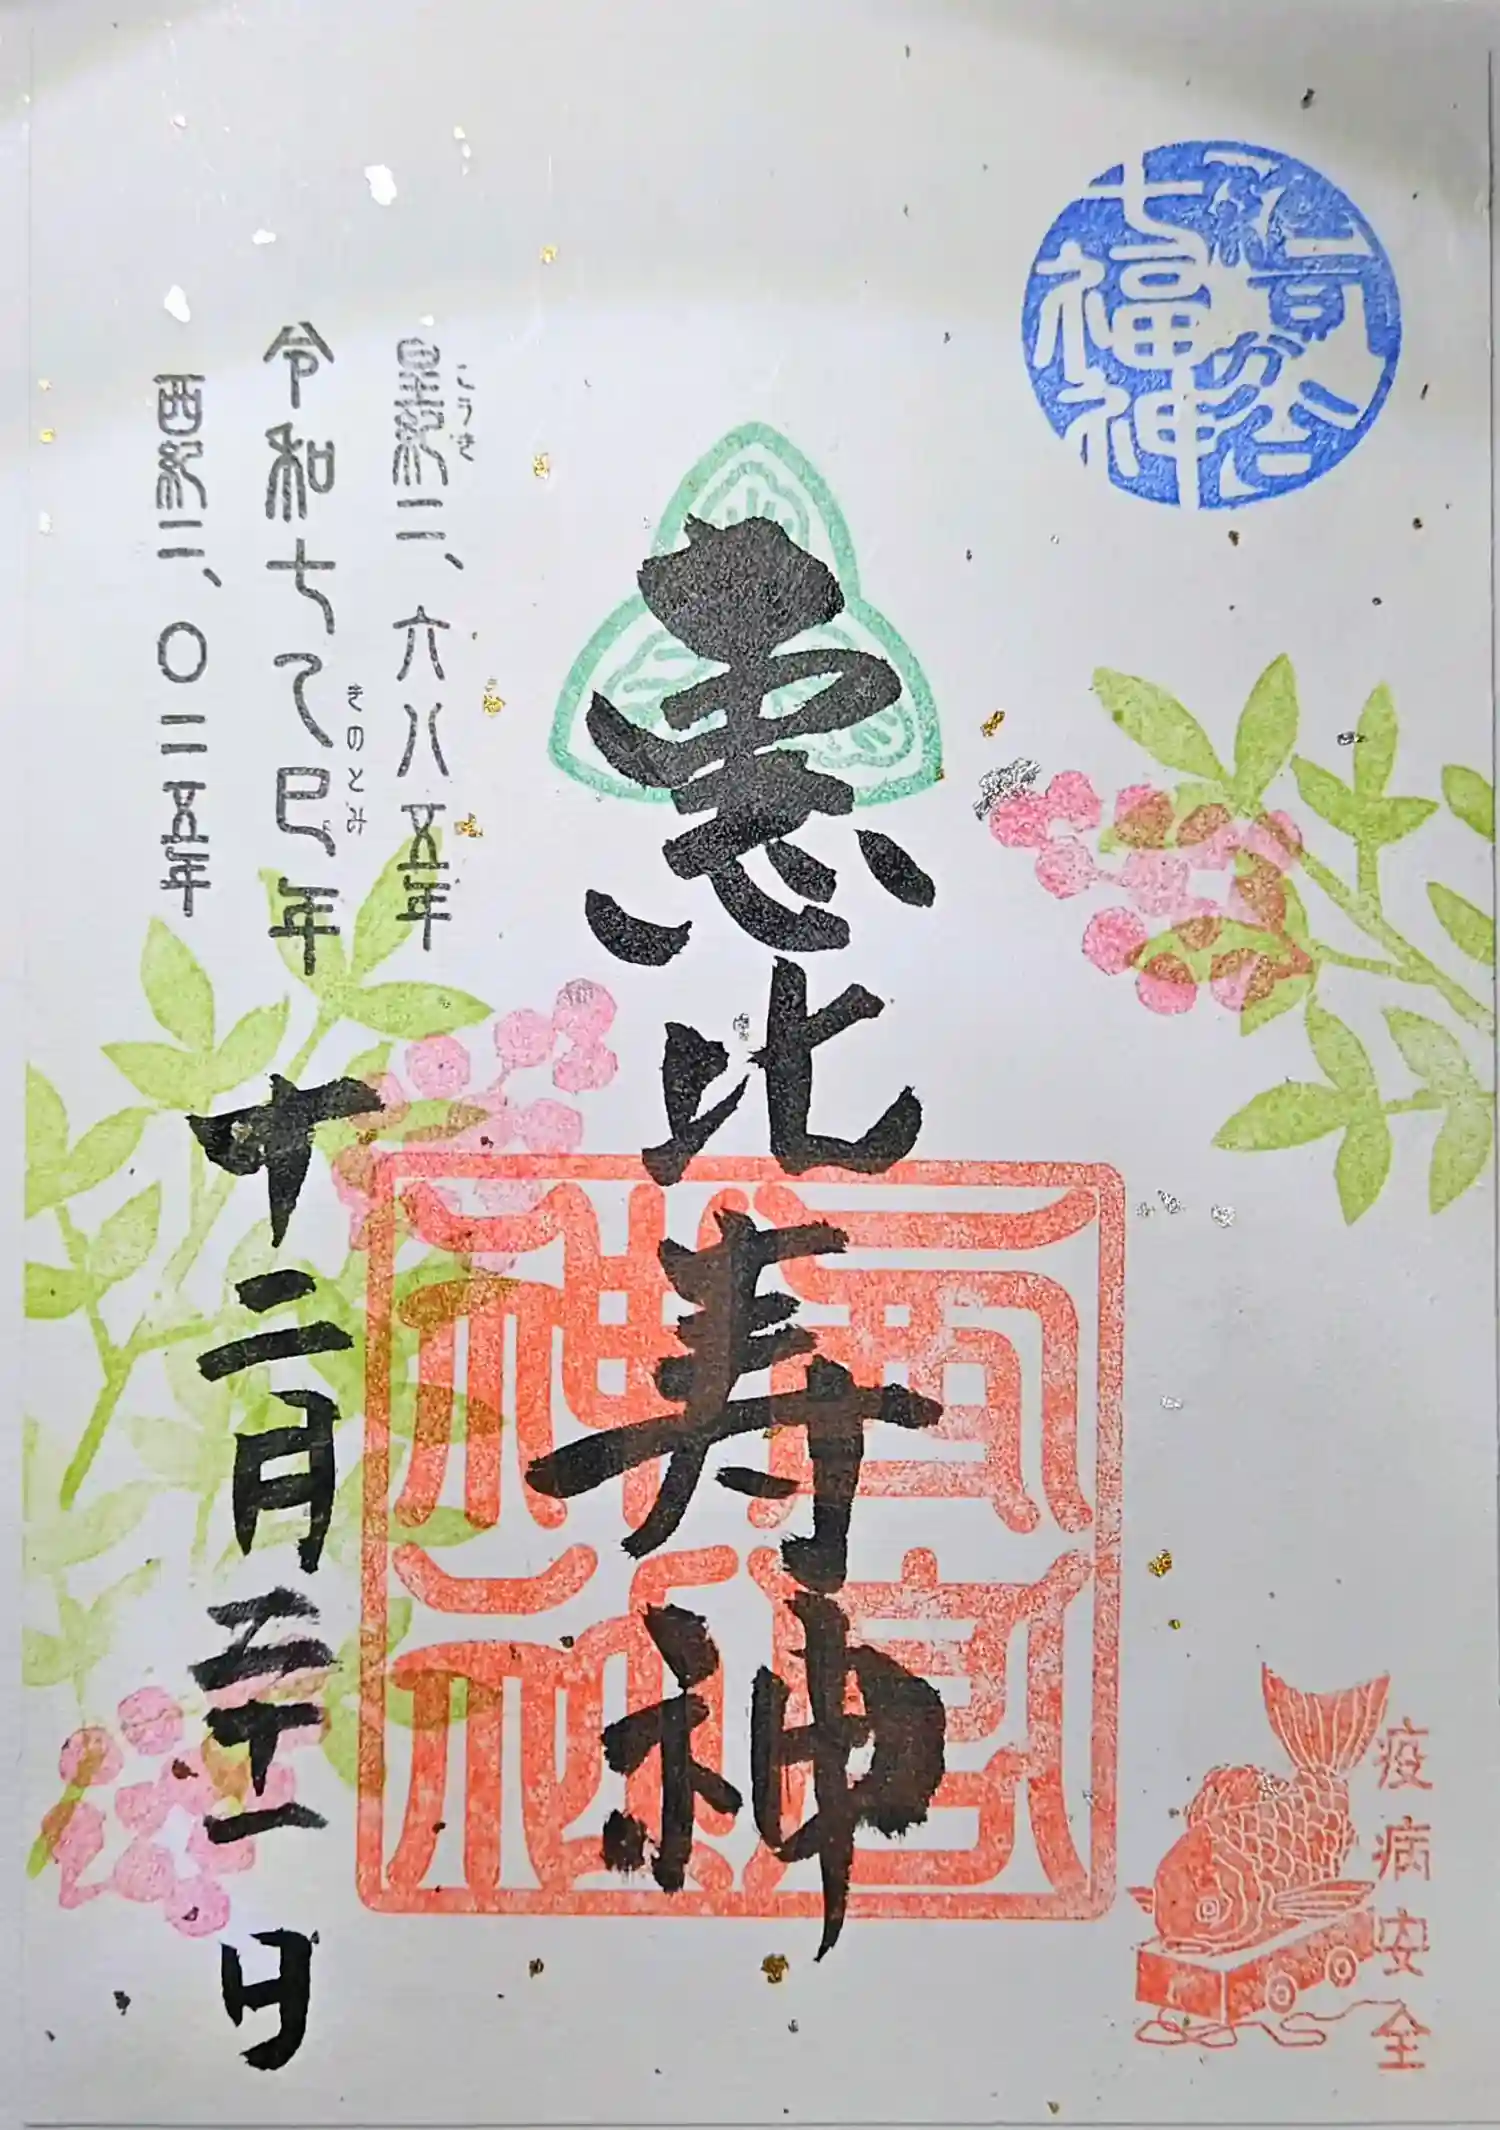 雑司が谷
七福神
恵比寿神
皇紀二、六八五年
こうき
令和七乙巳年
きのとみ
西紀二、〇二五年
十二月三十一日
疫病安全